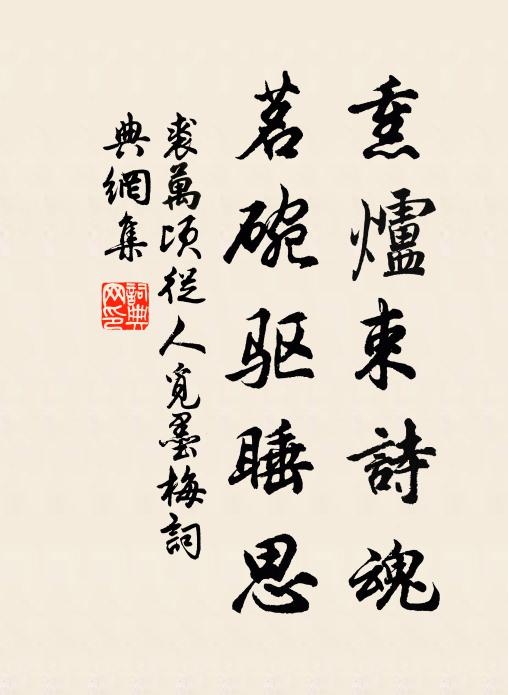 熏爐束詩魂
茗碗驱睡思
裘萬頃從人覓墨梅詞
典網集
詞典
网印